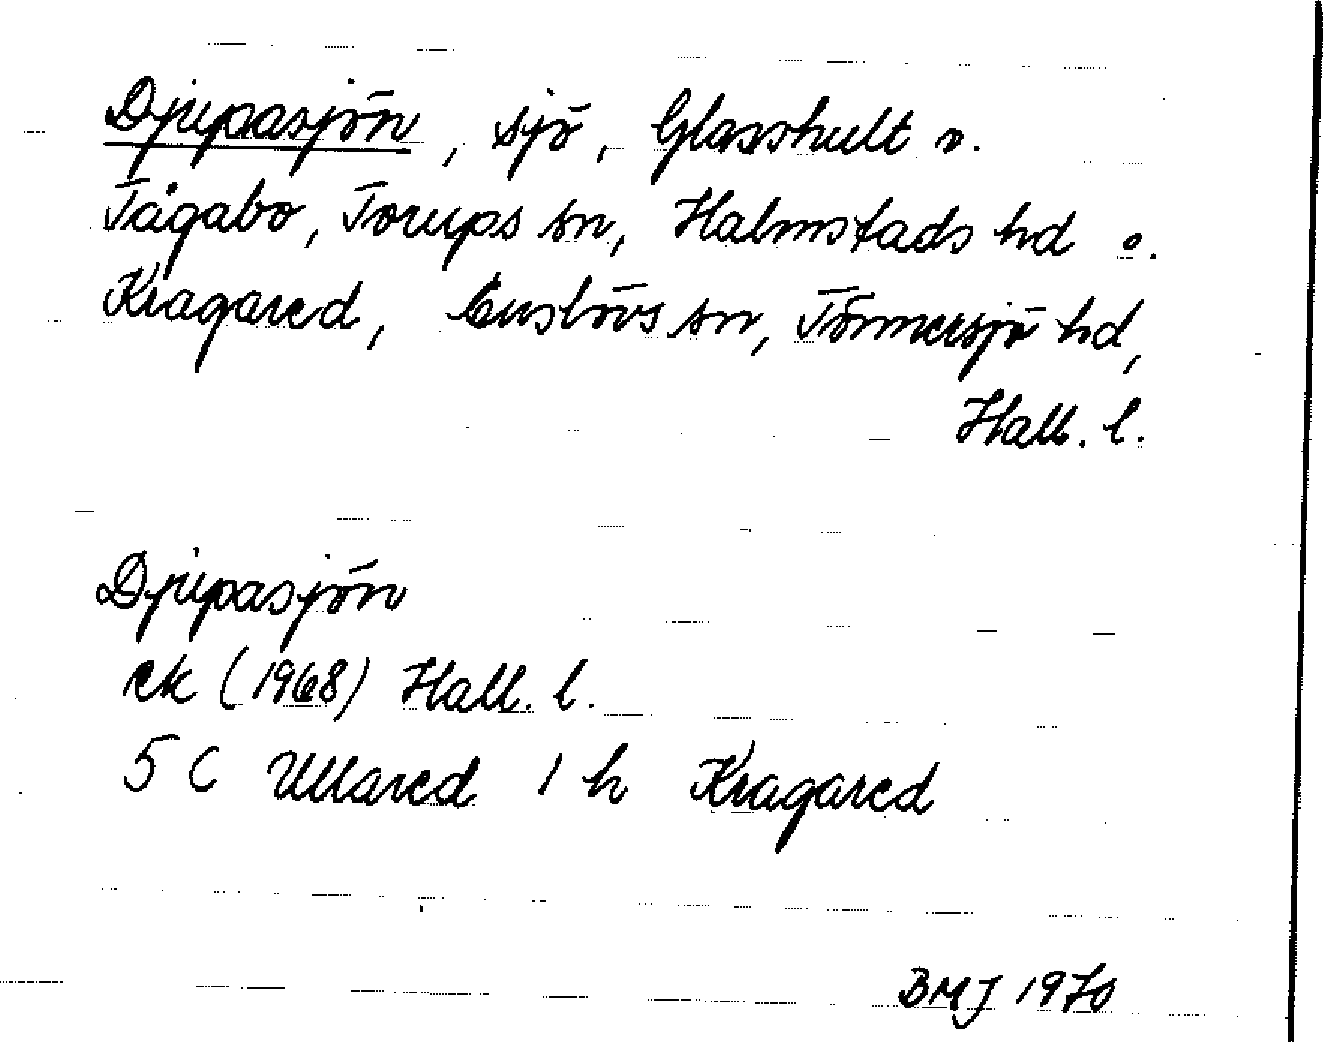 Djupasjön, sjö, Glasshult o.
Tågabo, Torups sn, Halmstads hd o.
Kragared, Enslövs sn, Tönnersjö hd,
Hall. l.
Djupasjön
ek (1968) Hall. l.
5 C Ullared 1 h Kragared
BMJ 1970